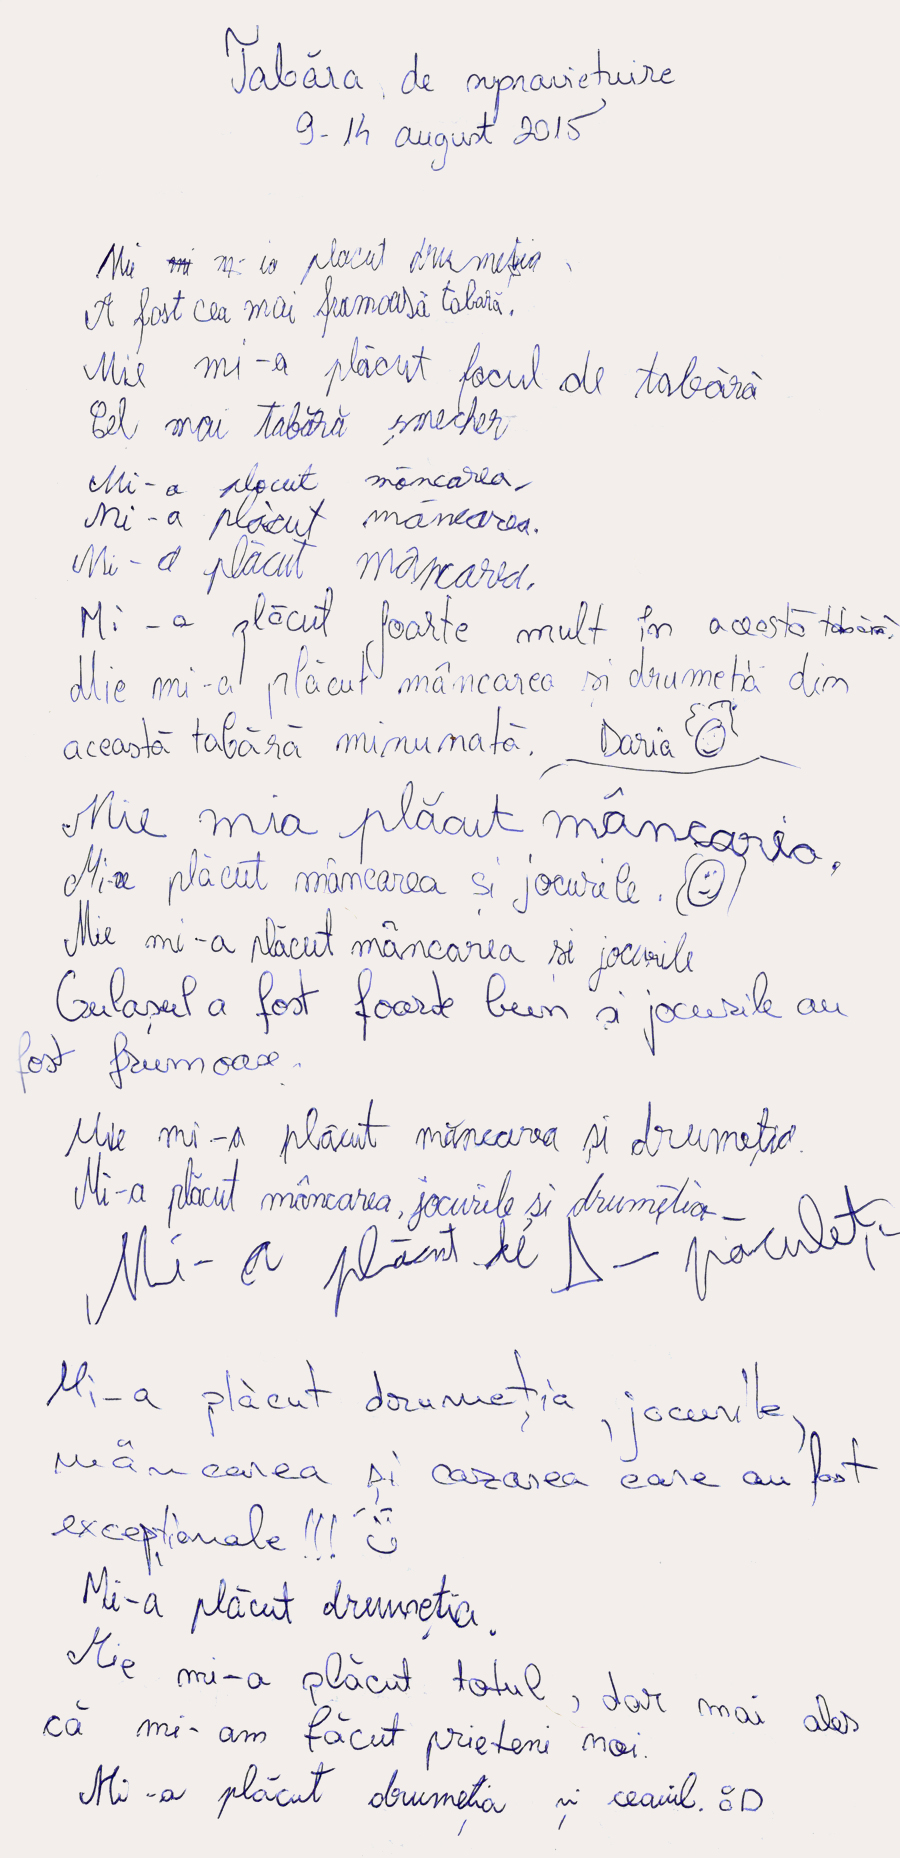 Tabăra de supraviețuire
9-14 august 2015
Mie mi-ia placut drumeția.
A fost cea mai frumoasă tabară.
Mie mi-a plăcut focul de tabără
Cel mai tabără șmecher
Mi-a plocut mâncarea.
Mi-a plăcut mâncarea.
Mi-a plăcut mâncarea.
Mi-a plăcut foarte mult în acestă tabără.
Mie mi-a plăcut mâncarea și drumeția din
această tabără minunată. Daria
Mie mia plăcut mâncaria.
Mi-a plăcut mâncarea și jocurile.
Mie mi-a plăcut mâncarea și jocurile
Gulașul a fost foarte bun și jocurile au
fost frumoase.
Mie mi-a plăcut mâncarea și drumeția.
Mi-a plăcut mâncarea, jocurile și drumeția
Mi-a plăcut
Mi-a plăcut drumeția, jocurile,
mâncarea și cazarea care au fost
excepționale!!!
Mi-a plăcut drumeția.
Mie mi-a plăcut totul, dar mai ales
că mi-am făcut prieteni noi.
Mi-a plăcut drumeția și ceaiul. :D